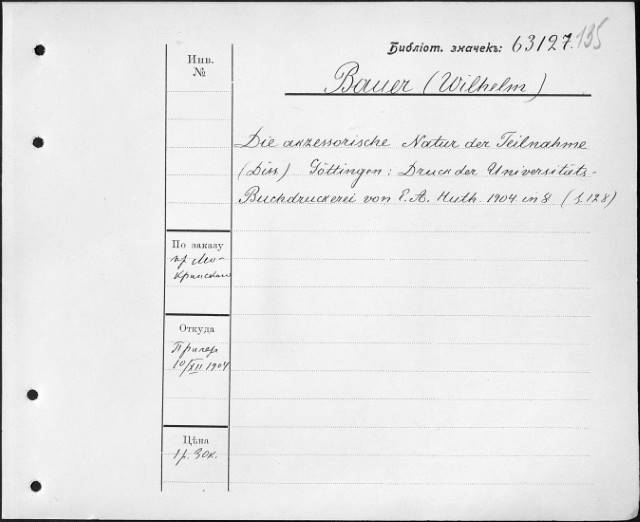 Библіот. значекъ: 63127.135
Инв.
№
Bauer (Wilhelm)
Die akzessorische Natur der Teilnahme
(Diss) Göttingen: Druck der Universitäts-
Buchdruckerei von E. A. Huth 1904 in 8 (S. 128)
По заказу
пр. Мо-
Откуда
10/XII 1904
Цѣна
1 р. 30 к.